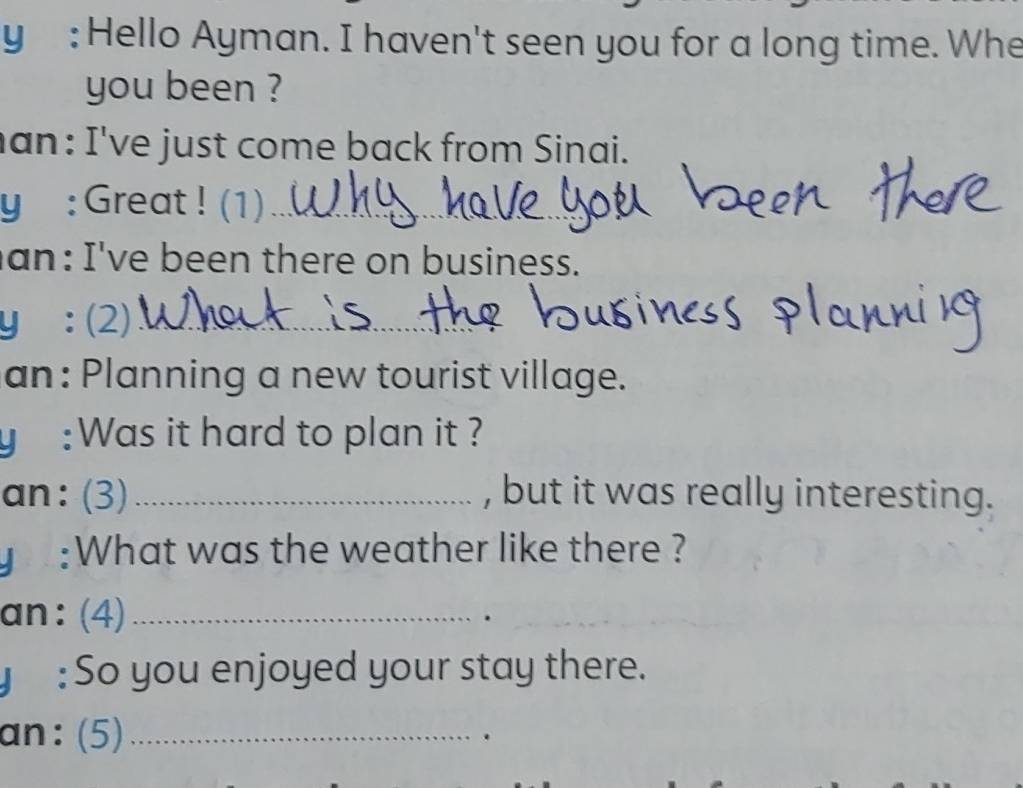 y : Hello Ayman. I haven't seen you for a long time. Whe
you been ?
an : I've just come back from Sinai.
y : Great ! (1) Why have you been there
an : I've been there on business.
y : (2) What is the business planning
an : Planning a new tourist village.
y : Was it hard to plan it ?
an : (3) .................... , but it was really interesting.
y : What was the weather like there ?
an : (4) .................... .
y : So you enjoyed your stay there.
an : (5) .................... .